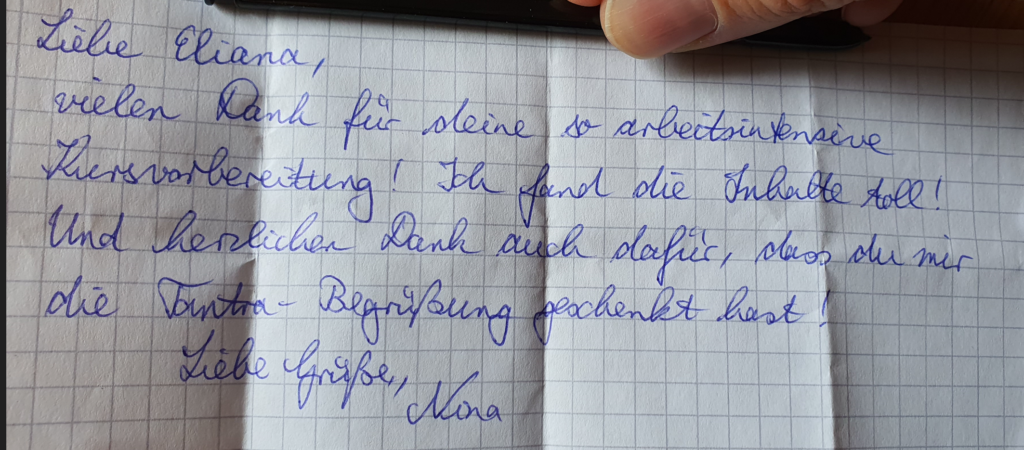 Liebe Eliana,
vielen Dank für deine so arbeitsintensive
Kursvorbereitung! Ich fand die Inhalte toll!
Und herzlichen Dank auch dafür, dass du mir
die Tantra-Begrüßung geschenkt hast!
Liebe Grüße,
Nona